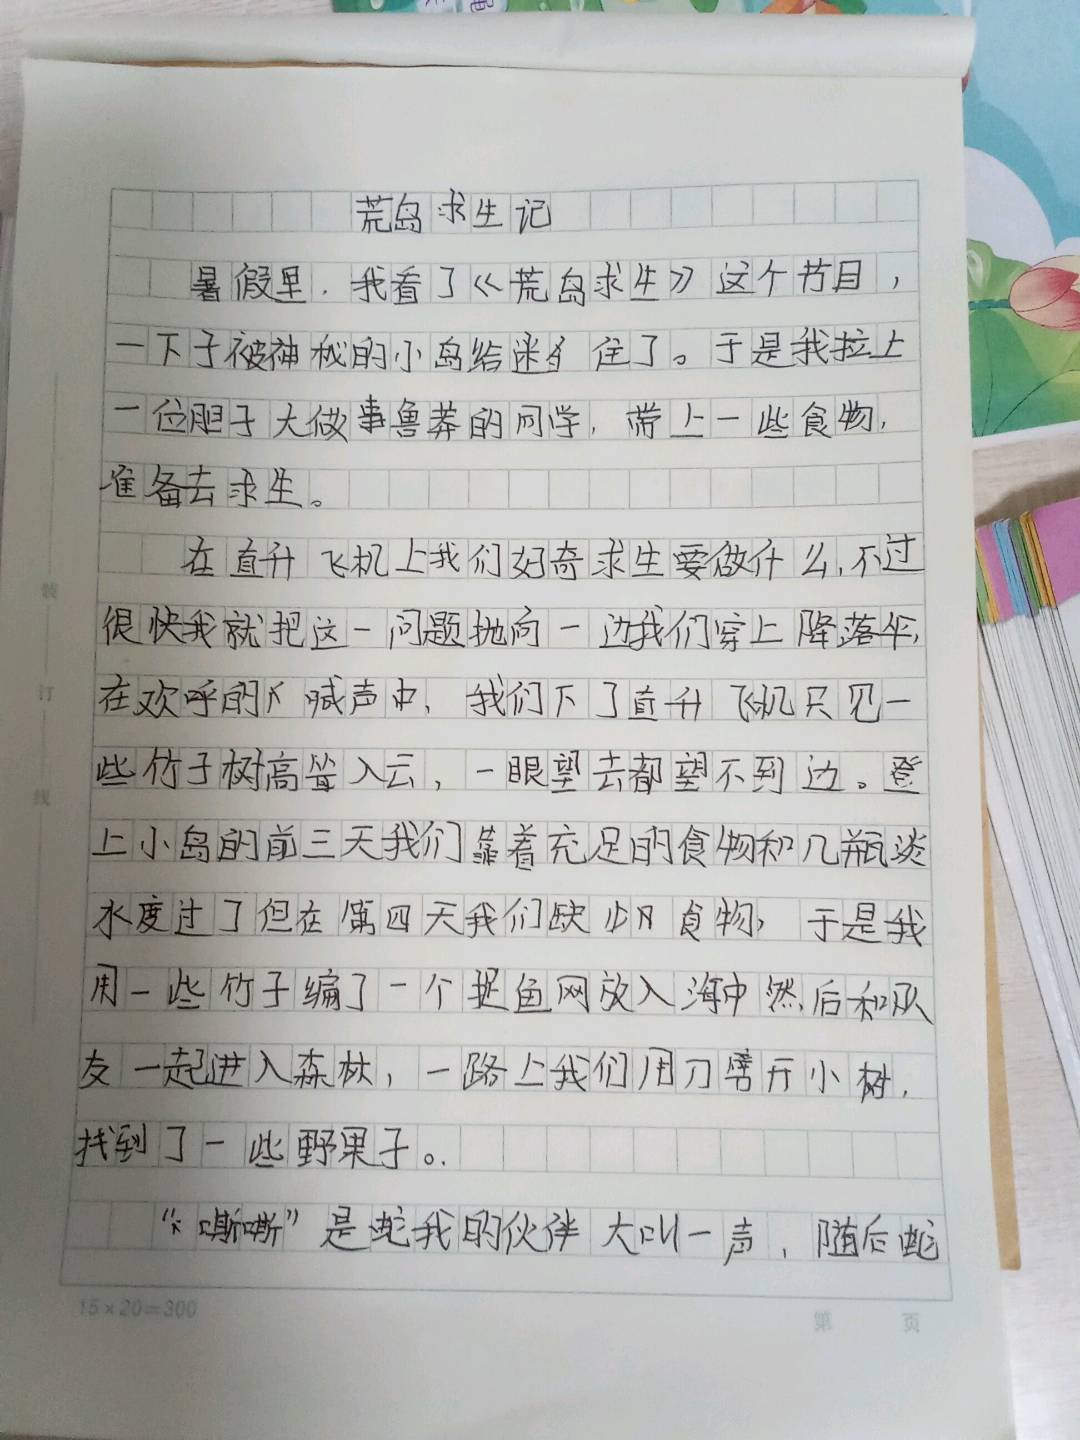 荒岛求生记
暑假里，我看了《荒岛求生》这个节目，
一下子被神秘的小岛给迷住了。于是我拉上
一位胆子大做事鲁莽的同学，带上一些食物，
准备去求生。
在直升飞机上我们好奇求生要做什么，不过
很快我就把这一问题抛向一边我们穿上降落伞，
在欢呼的喊声中，我们下了直升飞机只见一
些竹子树高耸入云，一眼望去都望不到边。登
上小岛的前三天我们靠着充足的食物和几瓶淡
水度过了但在第四天我们缺少食物，于是我
用一些竹子编了一个捉鱼网放入海中然后和队
友一起进入森林，一路上我们用刀劈开小树，
找到了一些野果子。
“嘶嘶”是蛇我的伙伴大叫一声，随后蛇
装
订
线
15×20=300
第 页